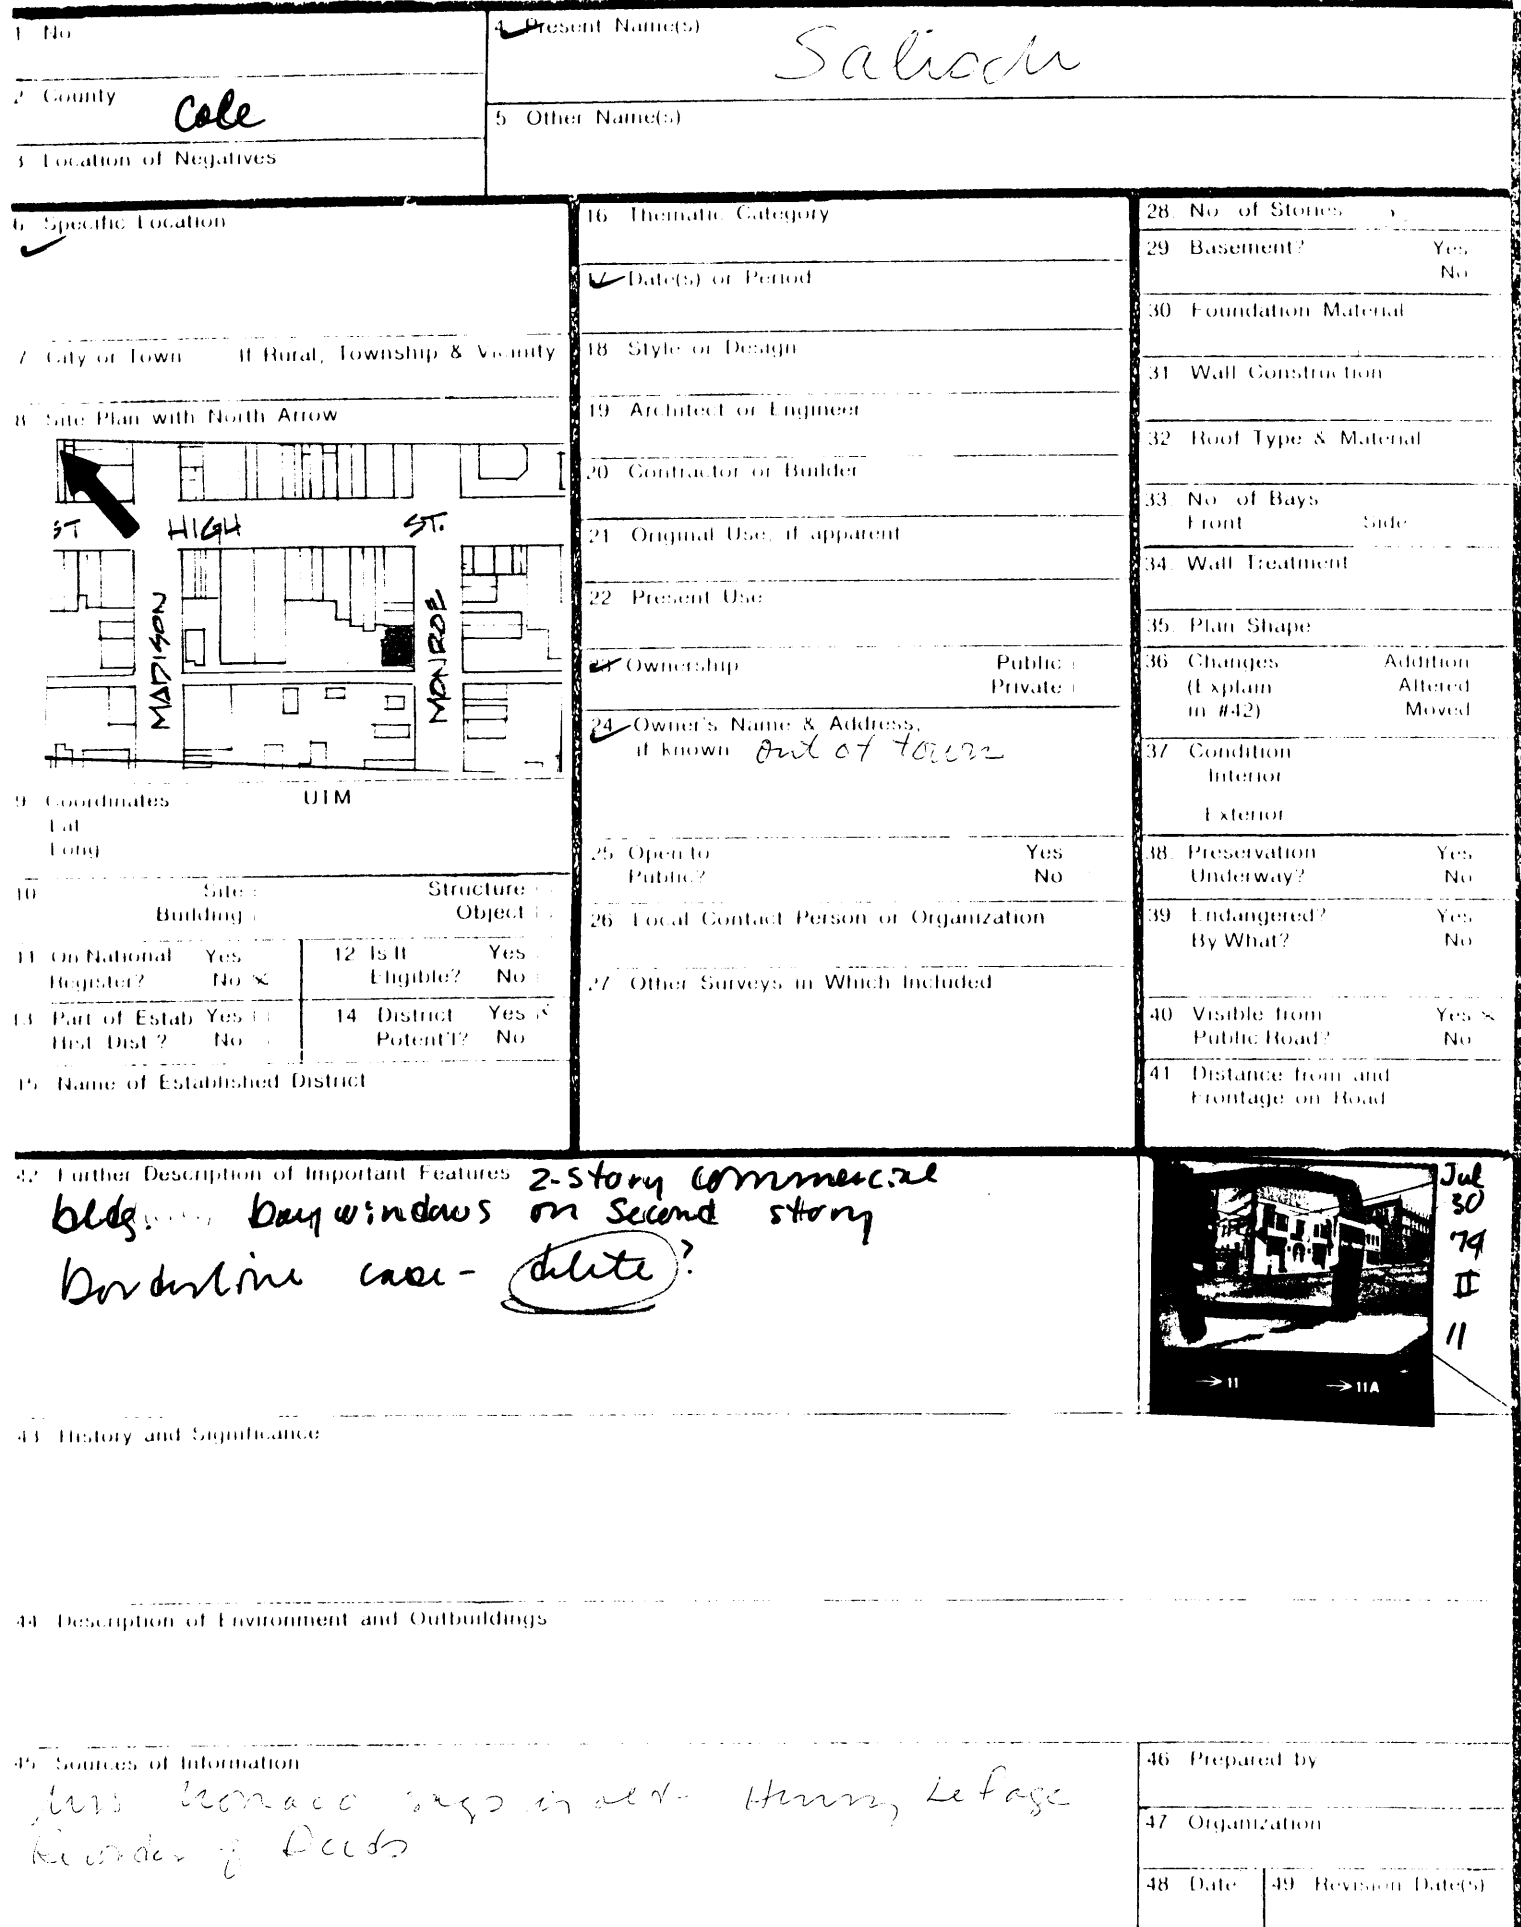 1 No
4 Present Name(s)
2 County Cole
5 Other Name(s)
3 Location of Negatives
6 Specific Location
7 City or Town If Rural, Township & Vicinity
8 Site Plan with North Arrow
ST HIGH ST.
MADISON
MONROE
9 Coordinates UTM
Lat
Long
10 Site Structure
Building Object
11 On National Yes
Register? No X
12 Is It Yes
Eligible? No
13 Part of Estab Yes
Hist Dist? No
14 District Yes X
Potent'l? No
15 Name of Established District
16 Thematic Category
17 Date(s) or Period
18 Style or Design
19 Architect or Engineer
20 Contractor or Builder
21 Original Use, if apparent
22 Present Use
23 Ownership Public
Private
24 Owner's Name & Address,
if known out of town
25 Open to Yes
Public? No
26 Local Contact Person or Organization
27 Other Surveys in Which Included
28. No of Stories
29 Basement? Yes
No
30 Foundation Material
31 Wall Construction
32 Roof Type & Material
33. No of Bays
Front Side
34. Wall Treatment
35. Plan Shape
36 Changes Addition
(Explain Altered
in #42) Moved
37 Condition
Interior
Exterior
38. Preservation Yes
Underway? No
39 Endangered? Yes
By What? No
40 Visible from Yes X
Public Road? No
41 Distance from and
Frontage on Road
42 Further Description of Important Features 2-story commercial
bldg. bay windows on second story
borderline case - delete?
Jul
30
79
II
11
→ 11 → 11A
43 History and Significance
44 Description of Environment and Outbuildings
45 Sources of Information
Mrs Monaco says Henry LePage
Recorder of Deeds
46 Prepared by
47 Organization
48 Date 49 Revision Date(s)